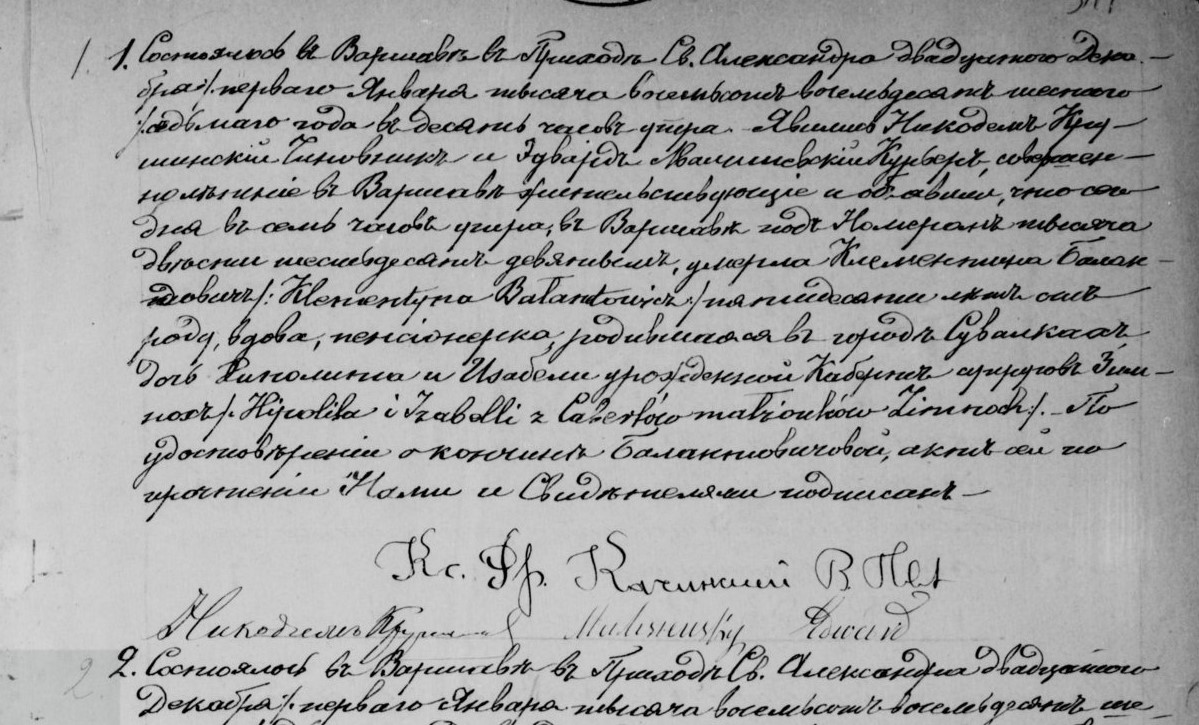 1. 1. Состоялось въ Варшавѣ въ Приходѣ Св. Александра двадцатого Дека-
бря /: перваго Января тысяча восемьсотъ восемьдесятъ шестаго
/: седьмаго года въ десять часовъ утра. Явились Никодемъ Кру-
шинскій Чиновникъ и Эдвардъ Малишевскій Курьеръ, совершен-
нолѣтніе въ Варшавѣ жительствующіе и объявили, что сего
дня въ семь часовъ утра, въ Варшавѣ подъ Номеромъ тысяча
двѣсти шестьдесятъ девятымъ, умерла Клементина Балан-
товичъ /: Klementyna Balantowicz :/ пятидесяти лѣтъ отъ
роду, вдова, пенсіонерка, родившаяся въ городѣ Сувалкахъ
дочь Гиполита и Изабели урожденной Кабертъ супруговъ Зим-
нохъ /: Hipolita i Izabelli z Cabertów małżonków Zimnoch :/. По
удостовѣреніи о кончинѣ Балантовичовой, актъ сей по
прочтеніи Нами и Свидѣтелями подписанъ —
Кс. Фр.
Никодемъ Edward
2 2. Состоялось въ Варшавѣ въ Приходѣ Св. Александра двадцатого
Декабря /: перваго Января тысяча восемьсотъ восемьдесятъ ше-